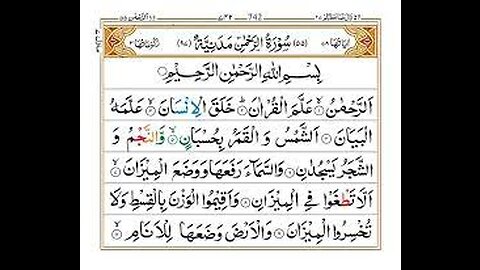 ۷۴۲
(۵۵) سُوْرَةُ الرَّحْمٰنِ مَدَنِيَّةٌ (۹۷)
بِسْمِ اللّٰهِ الرَّحْمٰنِ الرَّحِيْمِ
اَلرَّحْمٰنُ ۙ عَلَّمَ الْقُرْاٰنَ ؕ خَلَقَ الْاِنْسَانَ ۙ عَلَّمَهُ
الْبَيَانَ ۝ اَلشَّمْسُ وَ الْقَمَرُ بِحُسْبَانٍ ۝ وَّالنَّجْمُ وَ
الشَّجَرُ يَسْجُدٰنِ ۝ وَالسَّمَآءَ رَفَعَهَا وَ وَضَعَ الْمِيْزَانَ ۝
اَلَّا تَطْغَوْا فِي الْمِيْزَانِ ۝ وَاَقِيْمُوا الْوَزْنَ بِالْقِسْطِ وَلَا
تُخْسِرُوا الْمِيْزَانَ ۝ وَالْاَرْضَ وَضَعَهَا لِلْاَنَامِ ۝